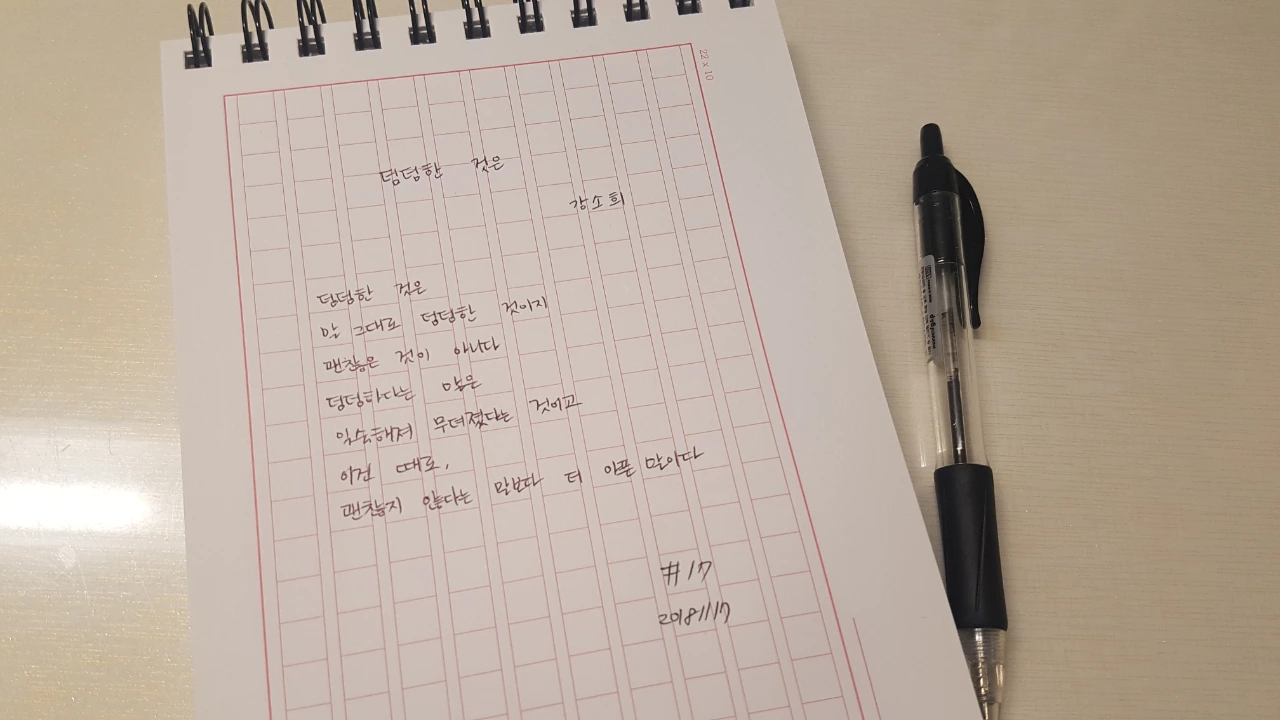 22 x 10
덤덤한 것은
강소희
덤덤한 것은
말 그대로 덤덤한 것이지
괜찮은 것이 아니다
덤덤하다는 말은
익숙해져 무뎌졌다는 것이고
이건 때로,
괜찮지 않다는 말보다 더 아픈 말이다
#17
20181117